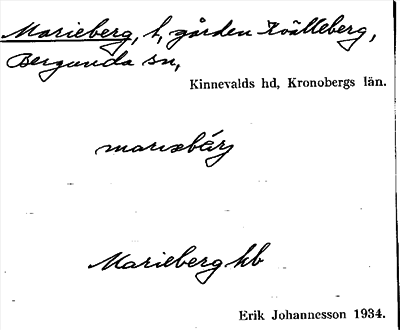 Marieberg, t, gården Kvälleberg,
Bergunda sn,
Kinnevalds hd, Kronobergs län.
Marieberg kb
Erik Johannesson 1934.